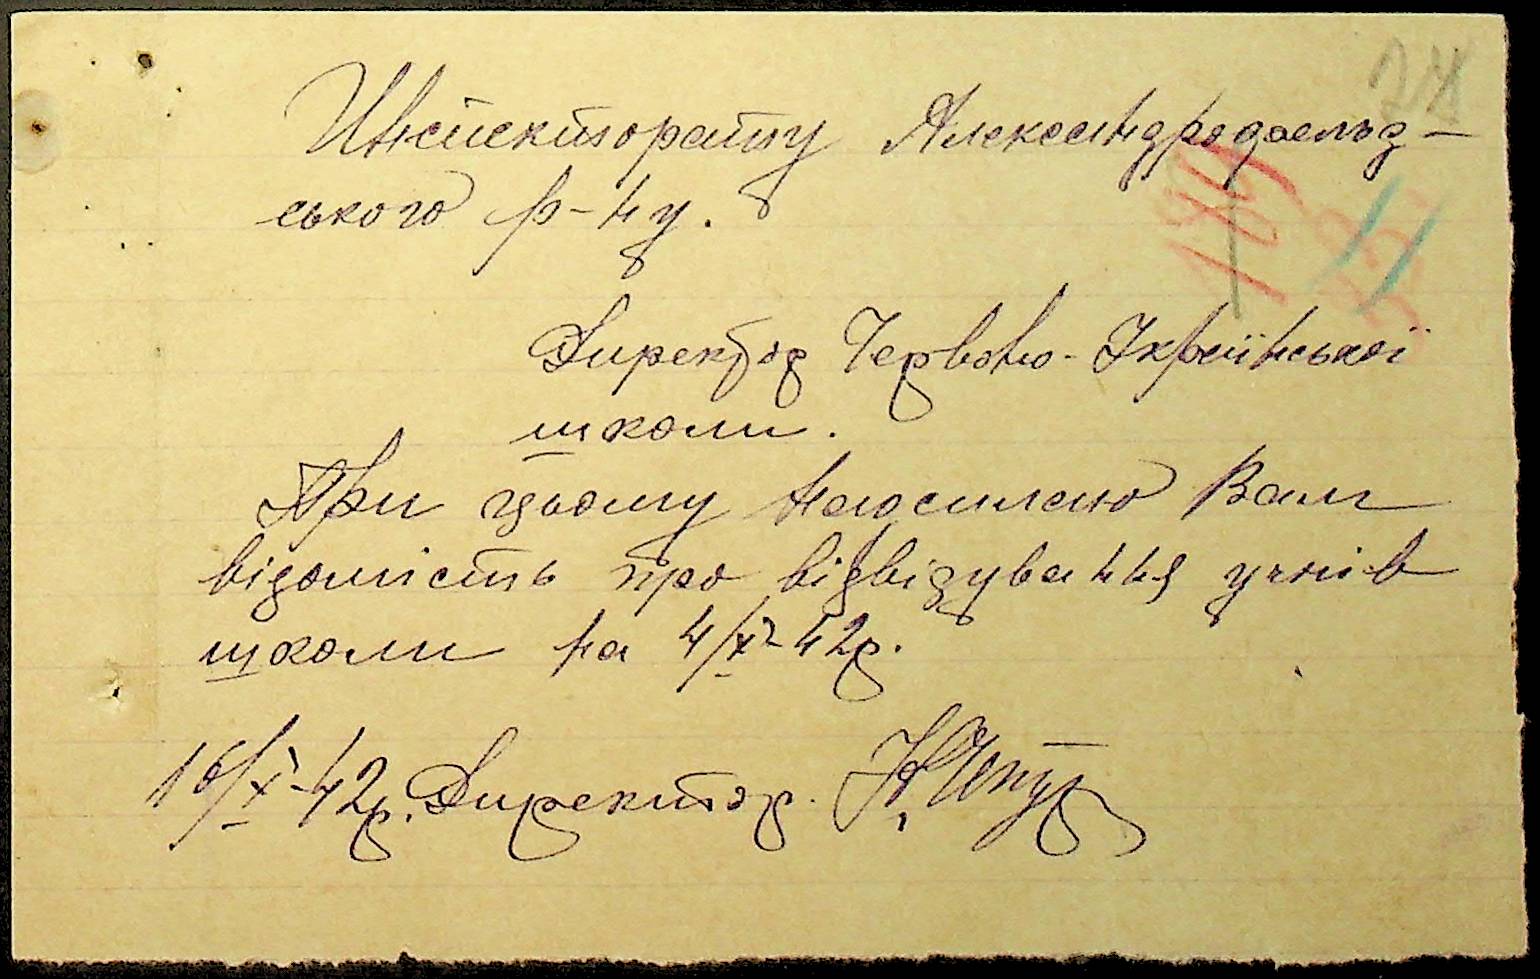 Инспекторату Александродаельд-
ського р-ну.
Директор Червоно-Української
школи.
При цьому надсилаю Вам
відомість про відвідування учнів
школи на 4/X-42р.
16/X-42р. Директор.